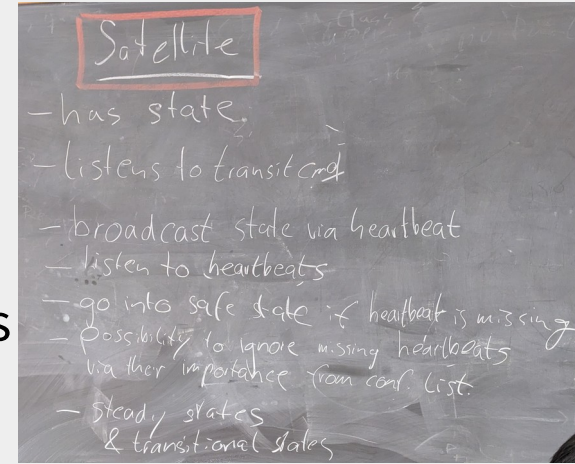 Satellite
- has state
- listens to transit cmd
- broadcast state via heartbeat
- listen to heartbeats
- go into safe state if heartbeat is missing
- possibility to ignore missing heartbeats
via their importance from conf. list.
- steady states
& transitional states
s